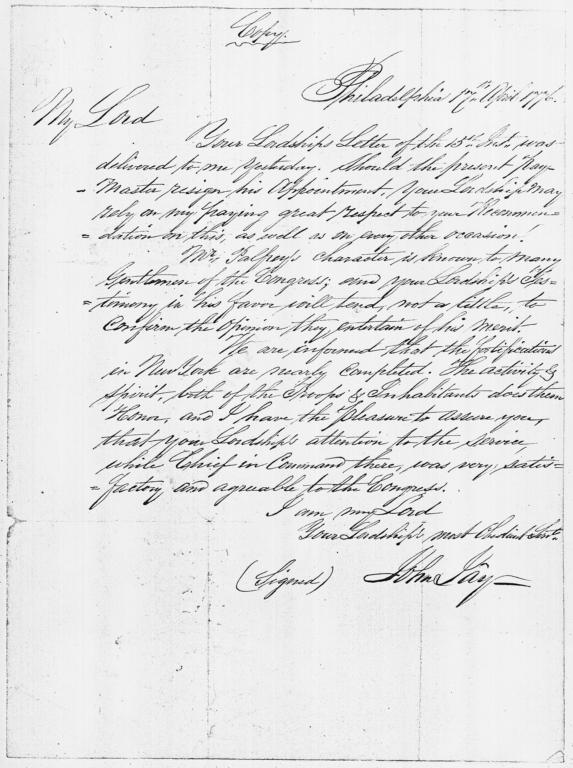 Copy.
Philadelphia 17th April 1776.
My Lord
Your Lordships Letter of the 13th Inst. was
delivered to me yesterday. Should the present Pay-
-Master resign his Appointment, your Lordship may
rely on my paying great respect to your Recommen-
-dation on this, as well as on every other occasion!
Mr. Palfrey's character is known to many
Gentlemen of the Congress; and your Lordship's Tes-
-timony in his favor will tend, not a little, to
Confirm the opinion they entertain of his merit.
We are informed that the fortifications
in New York are nearly completed. The activity &
spirit, both of the Troops & Inhabitants does them
Honor, and I have the pleasure to assure you,
that your Lordship's attention to the service,
while Chief in Command there, was very satis-
-factory and agreable to the Congress.
I am, my Lord
Your Lordship's most Obedient Servt.
(Signed) John Jay